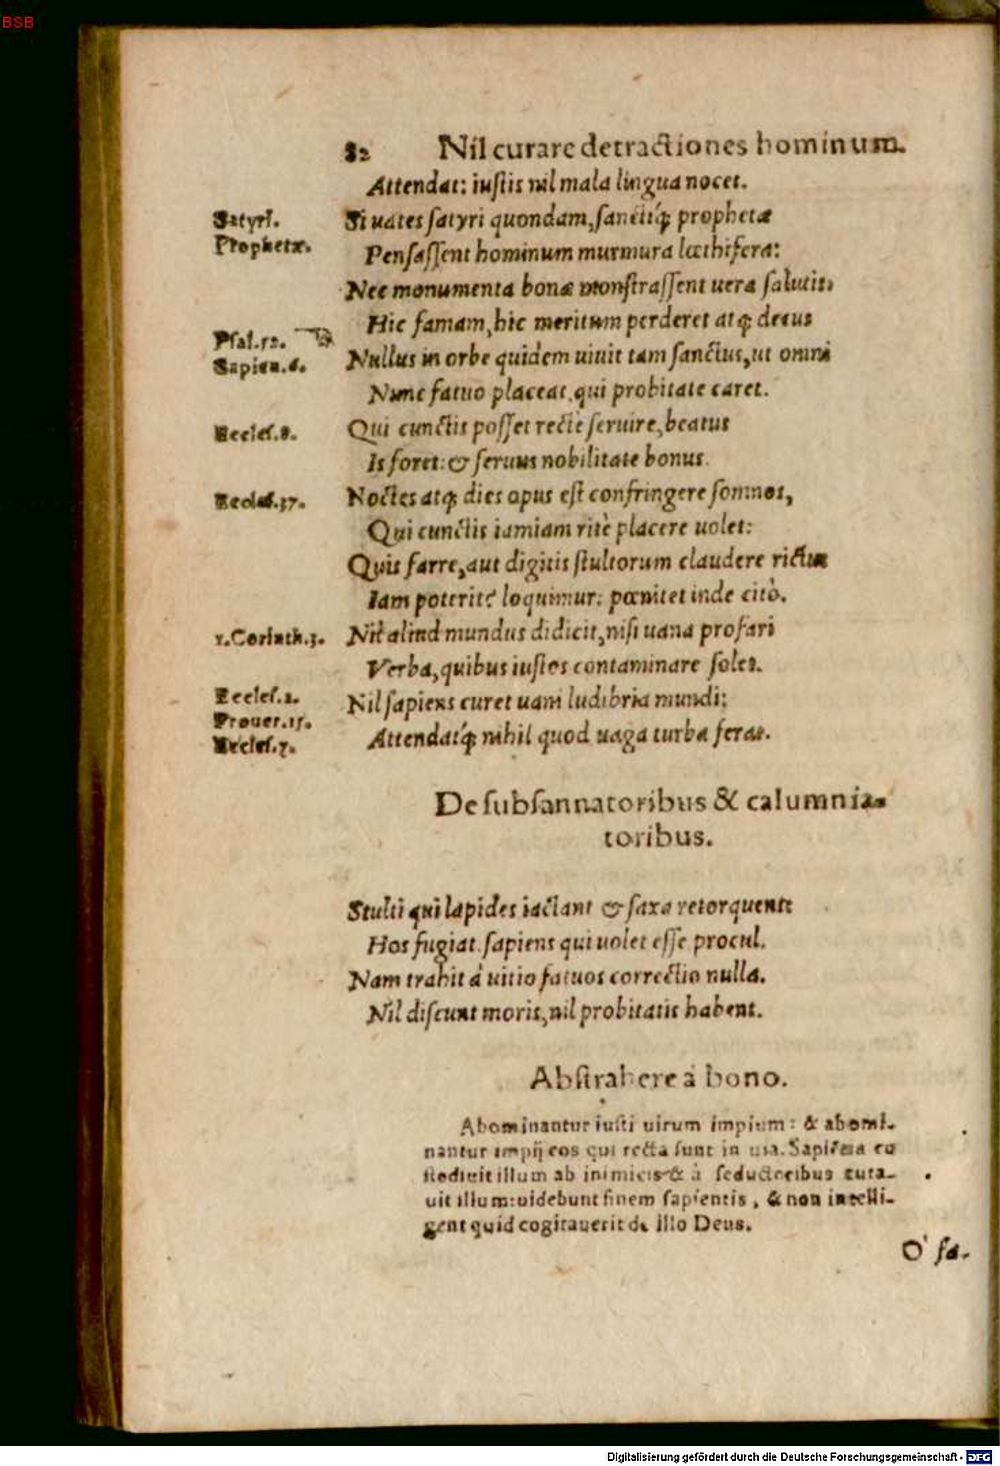 BSB
82 Nil curare detractiones hominum.
Attendat: iuſtis nil mala lingua nocet.
Satyri. Si uates ſatyri quondam, ſanctiq́; prophetæ
Prophetæ. Penſaſſent hominum murmura læthifera:
Nec monumenta bonæ monſtraſſent uera ſalutis,
Hic famam, hic meritum perderet atq; decus
Pſal.52.
Nullus in orbe quidem uiuit tam ſanctus, ut omni
Sapien.6.
Nunc fatuo placeat, qui probitate caret.
Eccleſ.8. Qui cunctis poſſet rectè ſeruire, beatus
Is foret: & ſeruus nobilitate bonus.
Eccleſ.37. Noctes atq; dies opus eſt confringere ſomnos,
Qui cunctis iamiam ritè placere uolet:
Quis farre, aut digitis ſtultorum claudere rictus
Iam poterit? loquimur: pœnitet inde citò.
1.Corinth.3. Nil aliud mundus didicit, niſi uana profari
Verba, quibus iuſtos contaminare ſolet.
Eccleſ.2. Nil ſapiens curet uani ludibria mundi:
Prouer.15.
Attendatq́; nihil quod uaga turba ferat.
Eccleſ.7.
De ſubſannatoribus & calumnia-
toribus.
Stulti qui lapides iactant & ſaxa retorquent
Hos fugiat ſapiens qui uolet eſſe procul.
Nam trahit à uitio fatuos correctio nulla.
Nil diſcunt moris, nil probitatis habent.
Abſtrahere à bono.
Abominantur iuſti uirum impium: & abomi-
nantur impij eos qui recta ſunt in uia. Sapiẽtia cu
ſtodiuit illum ab inimicis & à ſeductoribus tuta-
uit illum: uidebunt finem ſapientis, & non intelli-
gent quid cogitauerit de illo Deus.
O' ſa-
Digitalisierung gefördert durch die Deutsche Forschungsgemeinschaft - DFG